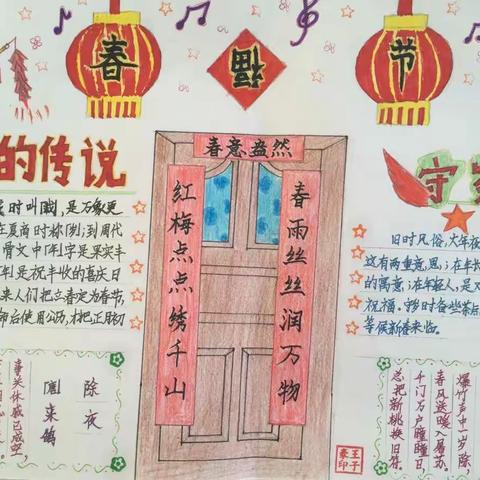 春
福
节
的传说
守
时叫载,是万象更
在夏商时称岁,到周代
骨文中[年]字是果实丰
年]是祝丰收的喜庆日
来人们把立春定为春节,
后使用公历,才把正月初
春意盎然
春雨丝丝润万物
红梅点点绣千山
旧时风俗,大年夜
这有两重意思:在年长
的寓意;在年轻人,是
祝福。守岁时备些茶
等候新春来临。
除夜
[唐]来鹄
事关休戚已成空,
爆竹声中一岁除,
春风送暖入屠苏。
千门万户曈曈日,
总把新桃换旧符。
王子
豪印